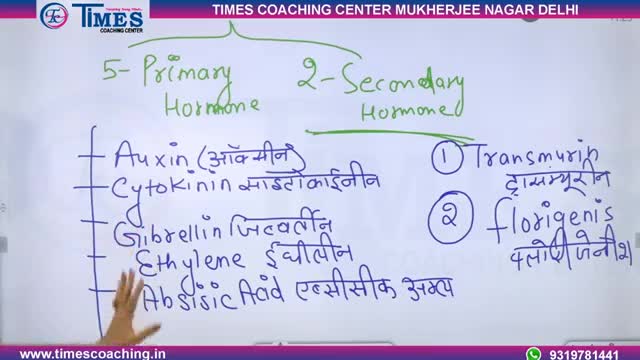 TIMES COACHING CENTER MUKHERJEE NAGAR DELHI
TIMES
COACHING CENTER
5- Primary Hormone
2- Secondary Hormone
Auxin (ऑक्सीन)
Cytokinin साइटोकाईनीन
Gibrellin जिबर्लीन
Ethylene ईथीलीन
Absisic Acid एब्सीसीक अम्ल
① Transmurin
ट्रासम्यूरीन
② florigenis
फ्लोरीजेनीश
www.timescoaching.in
9319781441